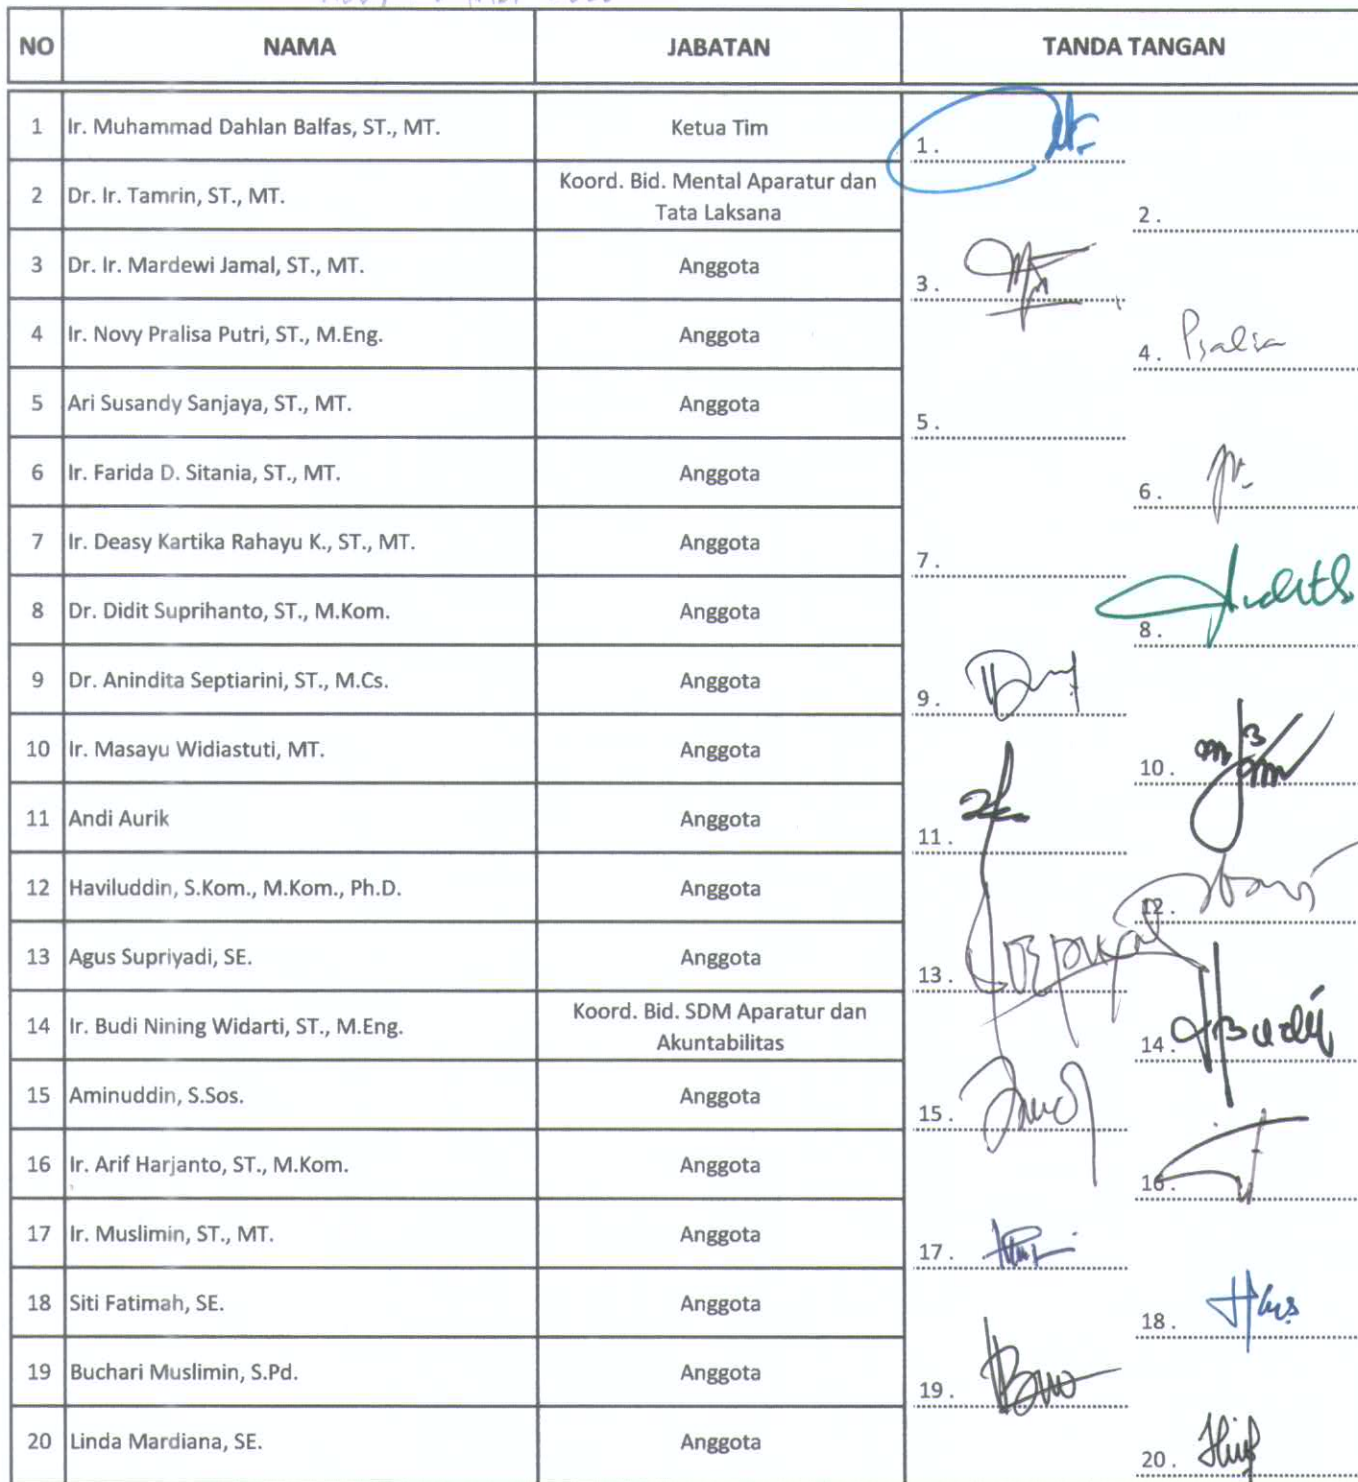 NO NAMA JABATAN TANDA TANGAN
1 Ir. Muhammad Dahlan Balfas, ST., MT. Ketua Tim 1.
2 Dr. Ir. Tamrin, ST., MT. Koord. Bid. Mental Aparatur dan
Tata Laksana 2.
3 Dr. Ir. Mardewi Jamal, ST., MT. Anggota 3.
4 Ir. Novy Pralisa Putri, ST., M.Eng. Anggota 4. Pralisa
5 Ari Susandy Sanjaya, ST., MT. Anggota 5.
6 Ir. Farida D. Sitania, ST., MT. Anggota 6.
7 Ir. Deasy Kartika Rahayu K., ST., MT. Anggota 7.
8 Dr. Didit Suprihanto, ST., M.Kom. Anggota 8.
9 Dr. Anindita Septiarini, ST., M.Cs. Anggota 9.
10 Ir. Masayu Widiastuti, MT. Anggota 10.
11 Andi Aurik Anggota 11.
12 Haviluddin, S.Kom., M.Kom., Ph.D. Anggota 12.
13 Agus Supriyadi, SE. Anggota 13.
14 Ir. Budi Nining Widarti, ST., M.Eng. Koord. Bid. SDM Aparatur dan
Akuntabilitas 14.
15 Aminuddin, S.Sos. Anggota 15.
16 Ir. Arif Harjanto, ST., M.Kom. Anggota 16.
17 Ir. Muslimin, ST., MT. Anggota 17.
18 Siti Fatimah, SE. Anggota 18.
19 Buchari Muslimin, S.Pd. Anggota 19.
20 Linda Mardiana, SE. Anggota 20.